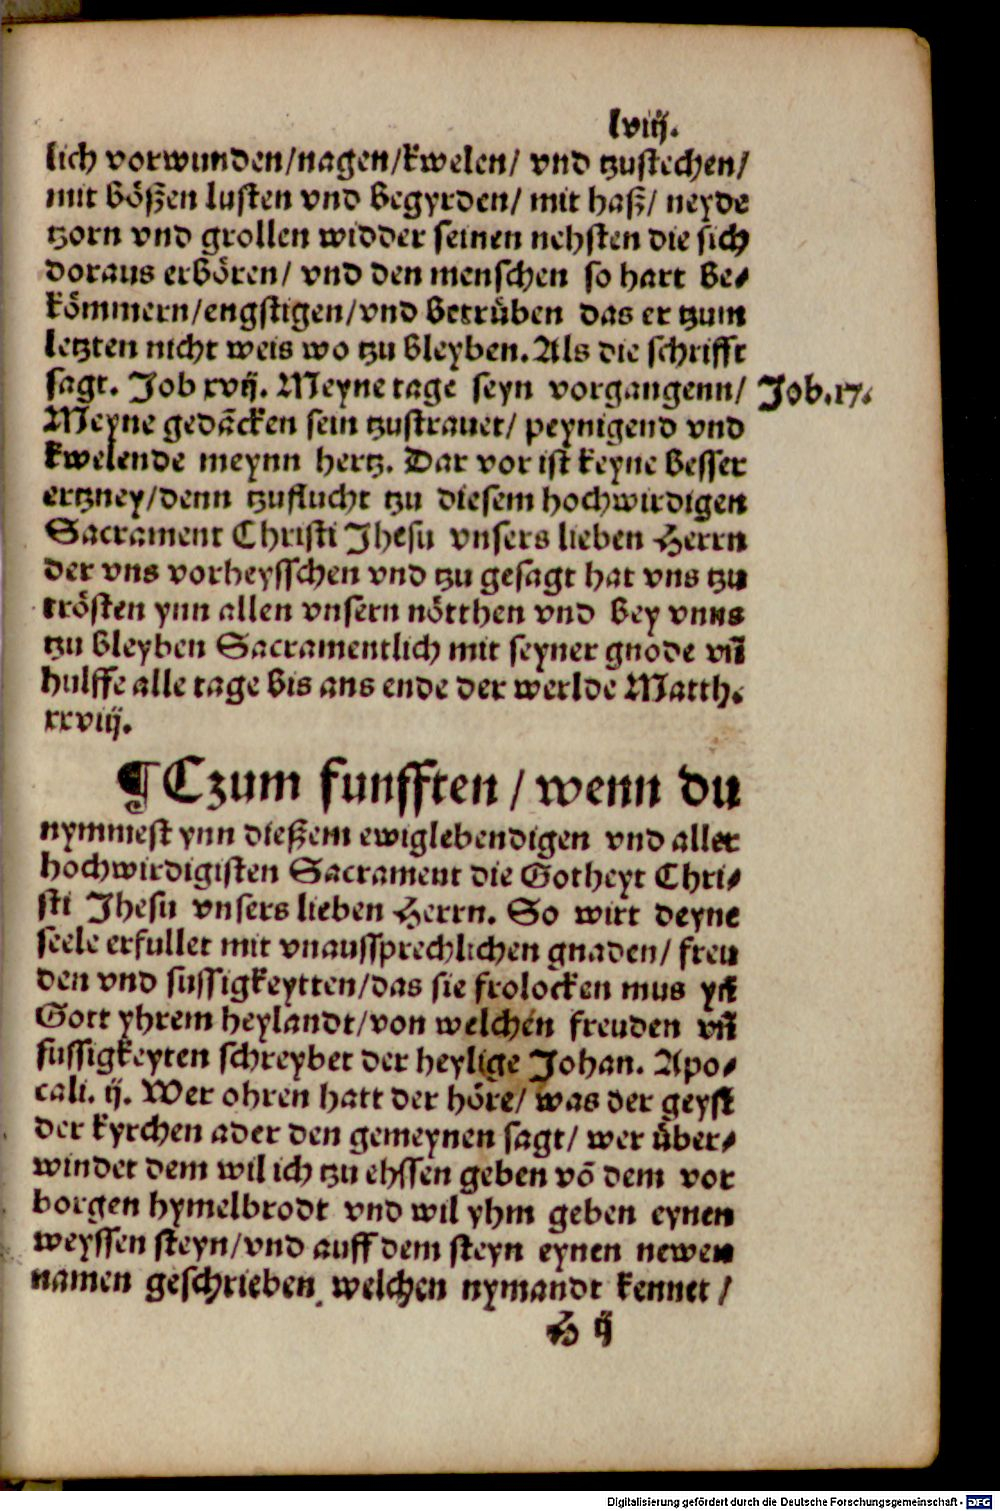 lviij.
lich vorwunden/nagen/kwelen/ vnd tzustechen/
mit bößen lusten vnd begyrden/ mit haß/ neyde
tzorn vnd grollen widder seinen nehsten die sich
doraus erbören/ vnd den menschen so hart be⸗
kömmern/engstigen/vnd betrüben das er tzum
letzten nicht weis wo tzu bleyben. Als die schrifft
sagt. Job xvij. Meyne tage seyn vorgangenn/
Job.17.
Meyne gedācken sein tzustrauet/ peynigend vnd
kwelende meynn hertz. Dar vor ist keyne besser
ertzney/denn tzuflucht tzu diesem hochwirdigen
Sacrament Christi Jhesu vnsers lieben Herrn
der vns vorheysschen vnd tzu gesagt hat vns tzu
trösten ynn allen vnsern nötthen vnd bey vnns
tzu bleyben Sacramentlich mit seyner gnode vñ
hulffe alle tage bis ans ende der werlde Matth.
xxviij.
¶ Czum funfften / wenn du
nymmest ynn dießem ewiglebendigen vnd aller
hochwirdigisten Sacrament die Gotheyt Chri⸗
sti Jhesu vnsers lieben Herrn. So wirt deyne
seele erfullet mit vnaussprechlichen gnaden/ freu
den vnd sussigkeytten/das sie frolocken mus yñ
Gott yhrem heylandt/von welchen freuden vñ
sussigkeyten schreybet der heylige Johan. Apo⸗
cali. ij. Wer ohren hatt der höre/ was der geyst
der kyrchen ader den gemeynen sagt/ wer über⸗
windet dem wil ich tzu ehssen geben vō dem vor
borgen hymelbrodt vnd wil yhm geben eynen
weyssen steyn/vnd auff dem steyn eynen newen
namen geschrieben, welchen nymandt kennet /
H ij
Digitalisierung gefördert durch die Deutsche Forschungsgemeinschaft - DFG